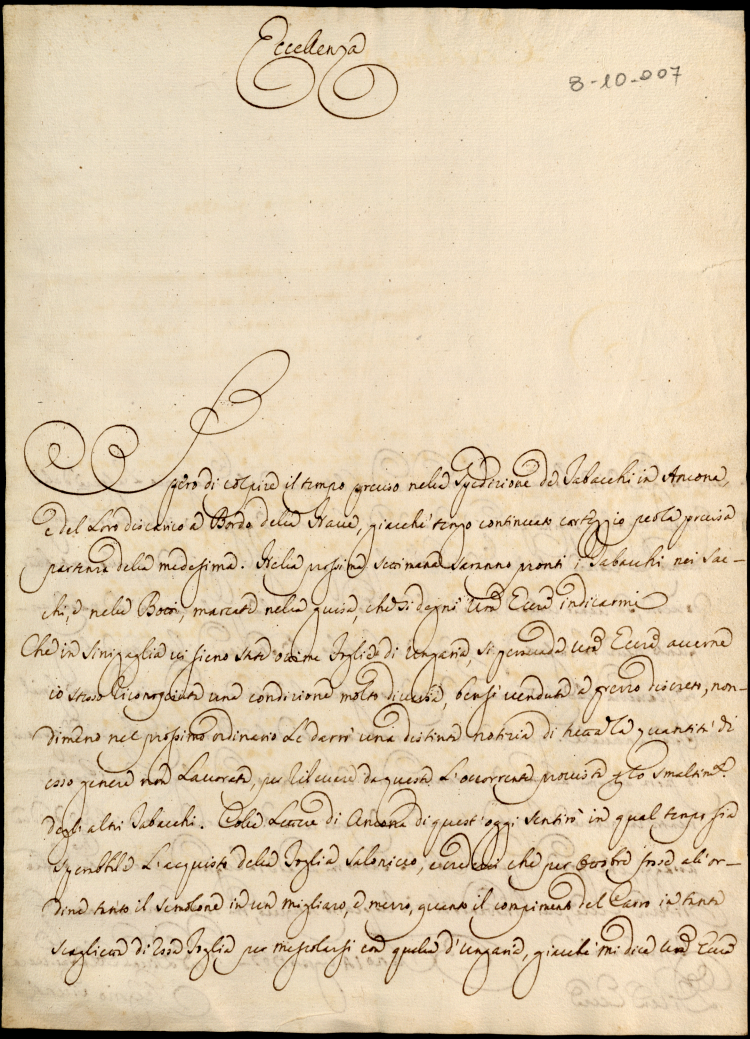 Eccellenza
8-10-007
Spero di colpire il tempo preciso nella Spedizione de Tabacchi in Ancona,
e del Loro discarico a Bordo della Nave, giacchè tengo continuato carteggio per la precisa
partenza della medesima. Nella prossima Settimana saranno pronti i Tabacchi nei Sac-
chi, e nelle Botti, marcate nella guisa, che si degnò Vra Eccza indicarmi
Che in Sinigaglia vi sieno state ottime foglie di Ungaria, si persuada Vra Eccza averne
io stesso riconosciuta una condizione molto diversa, bensì venduta a prezzo discreto, non-
dimeno nel prossimo ordinario Le darò una distinta notizia di tutta la quantità di
esso genere non Lavorato, per rilevare da questa L'occorrente provista lo smaltimto
degli altri Tabacchi. Colle Lettere di Ancona di quest'oggi sentirò in qual tempo sia
sperabile L'acquisto della foglia Salonicco, che per Ottobre fosse all'or-
dine tanto il Semolone in un migliaro, e mezzo, quanto il compimento del Carro in tanta
scaglietta di essa foglia per mescolarsi con quella d'Ungaria, giacchè mi dice Vra Eccza